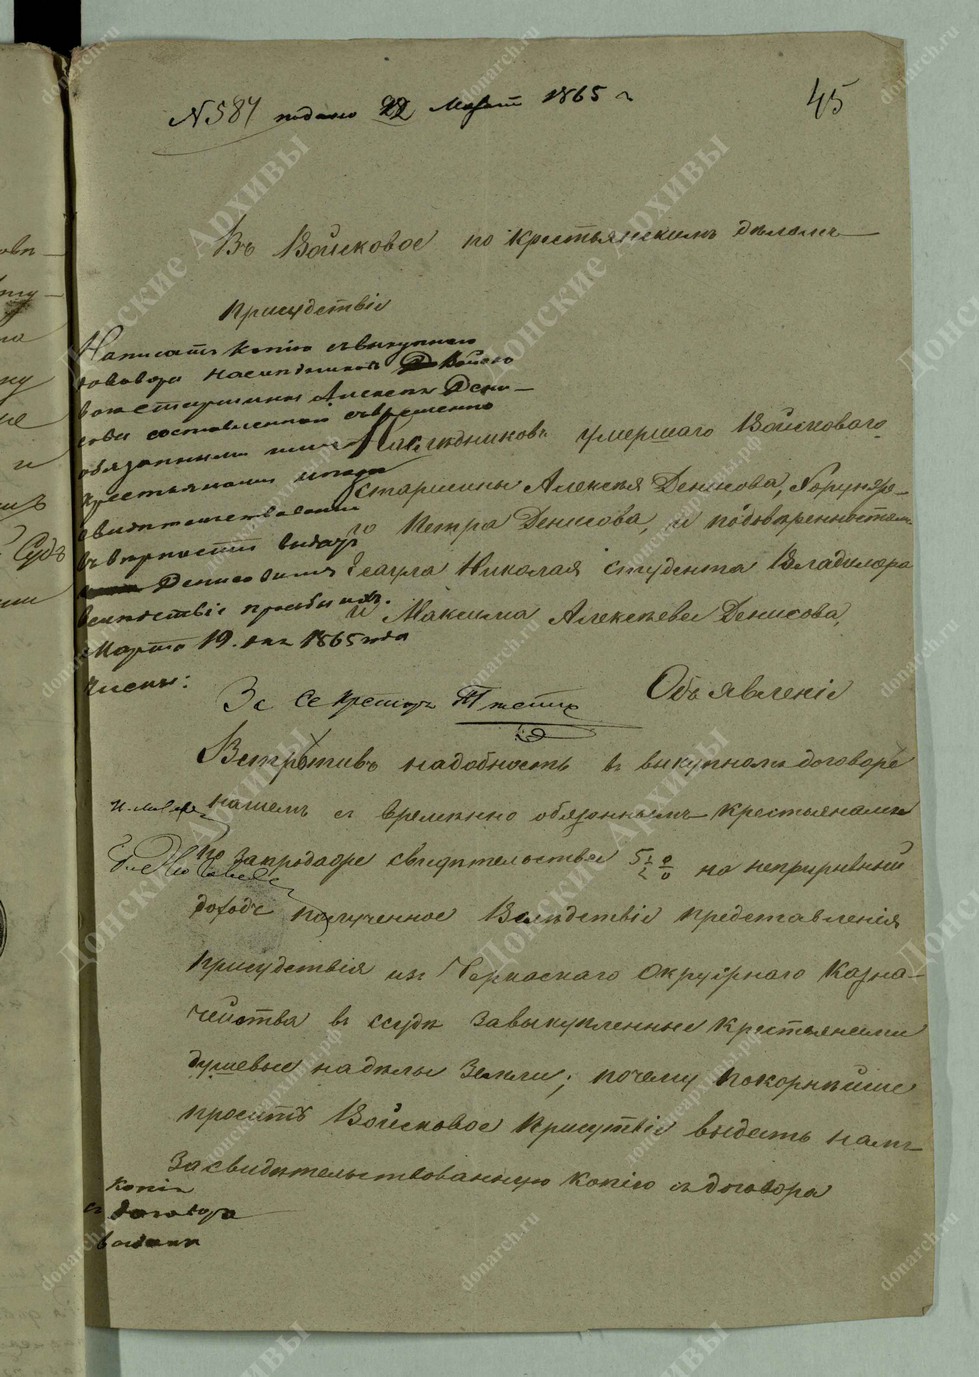 45
№ 587 подано 22 Марта 1865 г
Въ Войсковое по крестьянскимъ дѣламъ
Присудствіе
Написать копію съ выкупнаго
договора наслѣдниковъ Войско
ваго старшины Алексея Дени
сова составленной съ временно
обязанными
крестьянами
свидѣтельствовани
въ вѣрности выдать
Денисовымъ
вслѣдствіе прозьбы ихъ.
Марта 19. дня 1865 года
За Секретаря
Наслѣдниковъ умершаго Войсковаго
старшины Алексѣя Денисова, Хорунже-
го Петра Денисова, и по довѣренностямъ
Есаула Николая студента Владимера
и Максима Алексѣевы Денисова,
Объявленіе
Встрѣтивъ надобность въ выкупномъ договорѣ
нашемъ съ временно обязанными крестьянами
по запродаже свидѣтельства 5½ % на непрерывный
доходъ полученное Вслѣдствіе представленія
Присудствія изъ Черкаскаго Окружнаго Казна-
чейства въ ссуду за выкупленные крестьянами
душевые надѣлы земли; почему покорнѣйше
просимъ Войсковое Присутствіе выдать намъ
засвидѣтельствованную копію съ договора
копію
съ договора